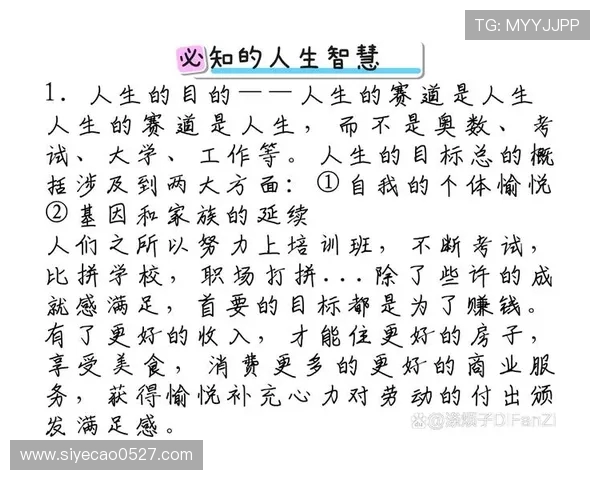 TG: MYYJJPP
必知的人生智慧
1. 人生的目的——人生的赛道是人生
人生的赛道是人生，而不是奥数、考
试、大学、工作等。人生的目标总的概
括涉及到两大方面：①自我的个体愉悦
②基因和家族的延续
人们之所以努力上培训班，不断考试，
比拼学校，职场打拼...除了些许的成
就感满足，首要的目标都是为了赚钱。
有了更好的收入，才能住更好的房子，
享受美食，消费更多的更好的商业服
务，获得愉悦补充心力对劳动的付出颁
发满足感。
DiFanZi
www.siyecao0527.com